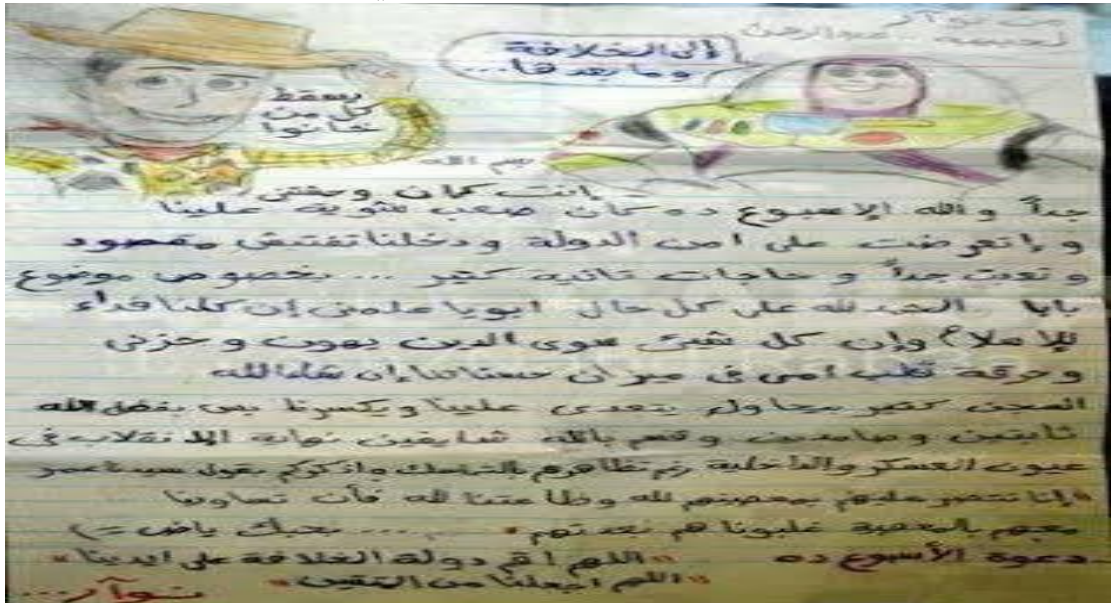 من نوآر
لحبيبه ... عبدالرحمن
إلى الخلافة
وما بعدها...
يسقط
كل من
خانوا
بسم الله
إنت كمان وحشتنى
جداً والله الإسبوع ده كان صعب شوية علينا
وإتعرضت على امن الدولة ودخلنا تفتيش مقصود
وتعبت جداً وحاجات تانيه كتير ... بخصوص موضوع
بابا الحمد لله على كل حال ابويا علمنى إن كلنا فداء
للإسلام وإن كل شيئ سوى الدين يهون وحزنى
وحرقة قلب امى فى ميزان حسناتنا إن شاء الله
السجن كتير بيحاول يتعدى علينا ويكسرنا بس بفضل الله
ثابتين وصامدين وقسم بالله شايفين نهاية الإنقلاب فى
عيون العسكر والداخلية رغم تظاهرهم بالتماسك واذكركم بقول سيدنا عمر
"إنا ننتصر عليهم بمعصيتهم لله وطاعتنا لله فأن تساوينا
معهم بالمعصية غلبونا هم بعدتهم" ... بحبك
دعوة الأسبوع ده "اللهم اقم دولة الخلافة على ايدينا"
"اللهم اجعلنا من المتقين"
نوآر...